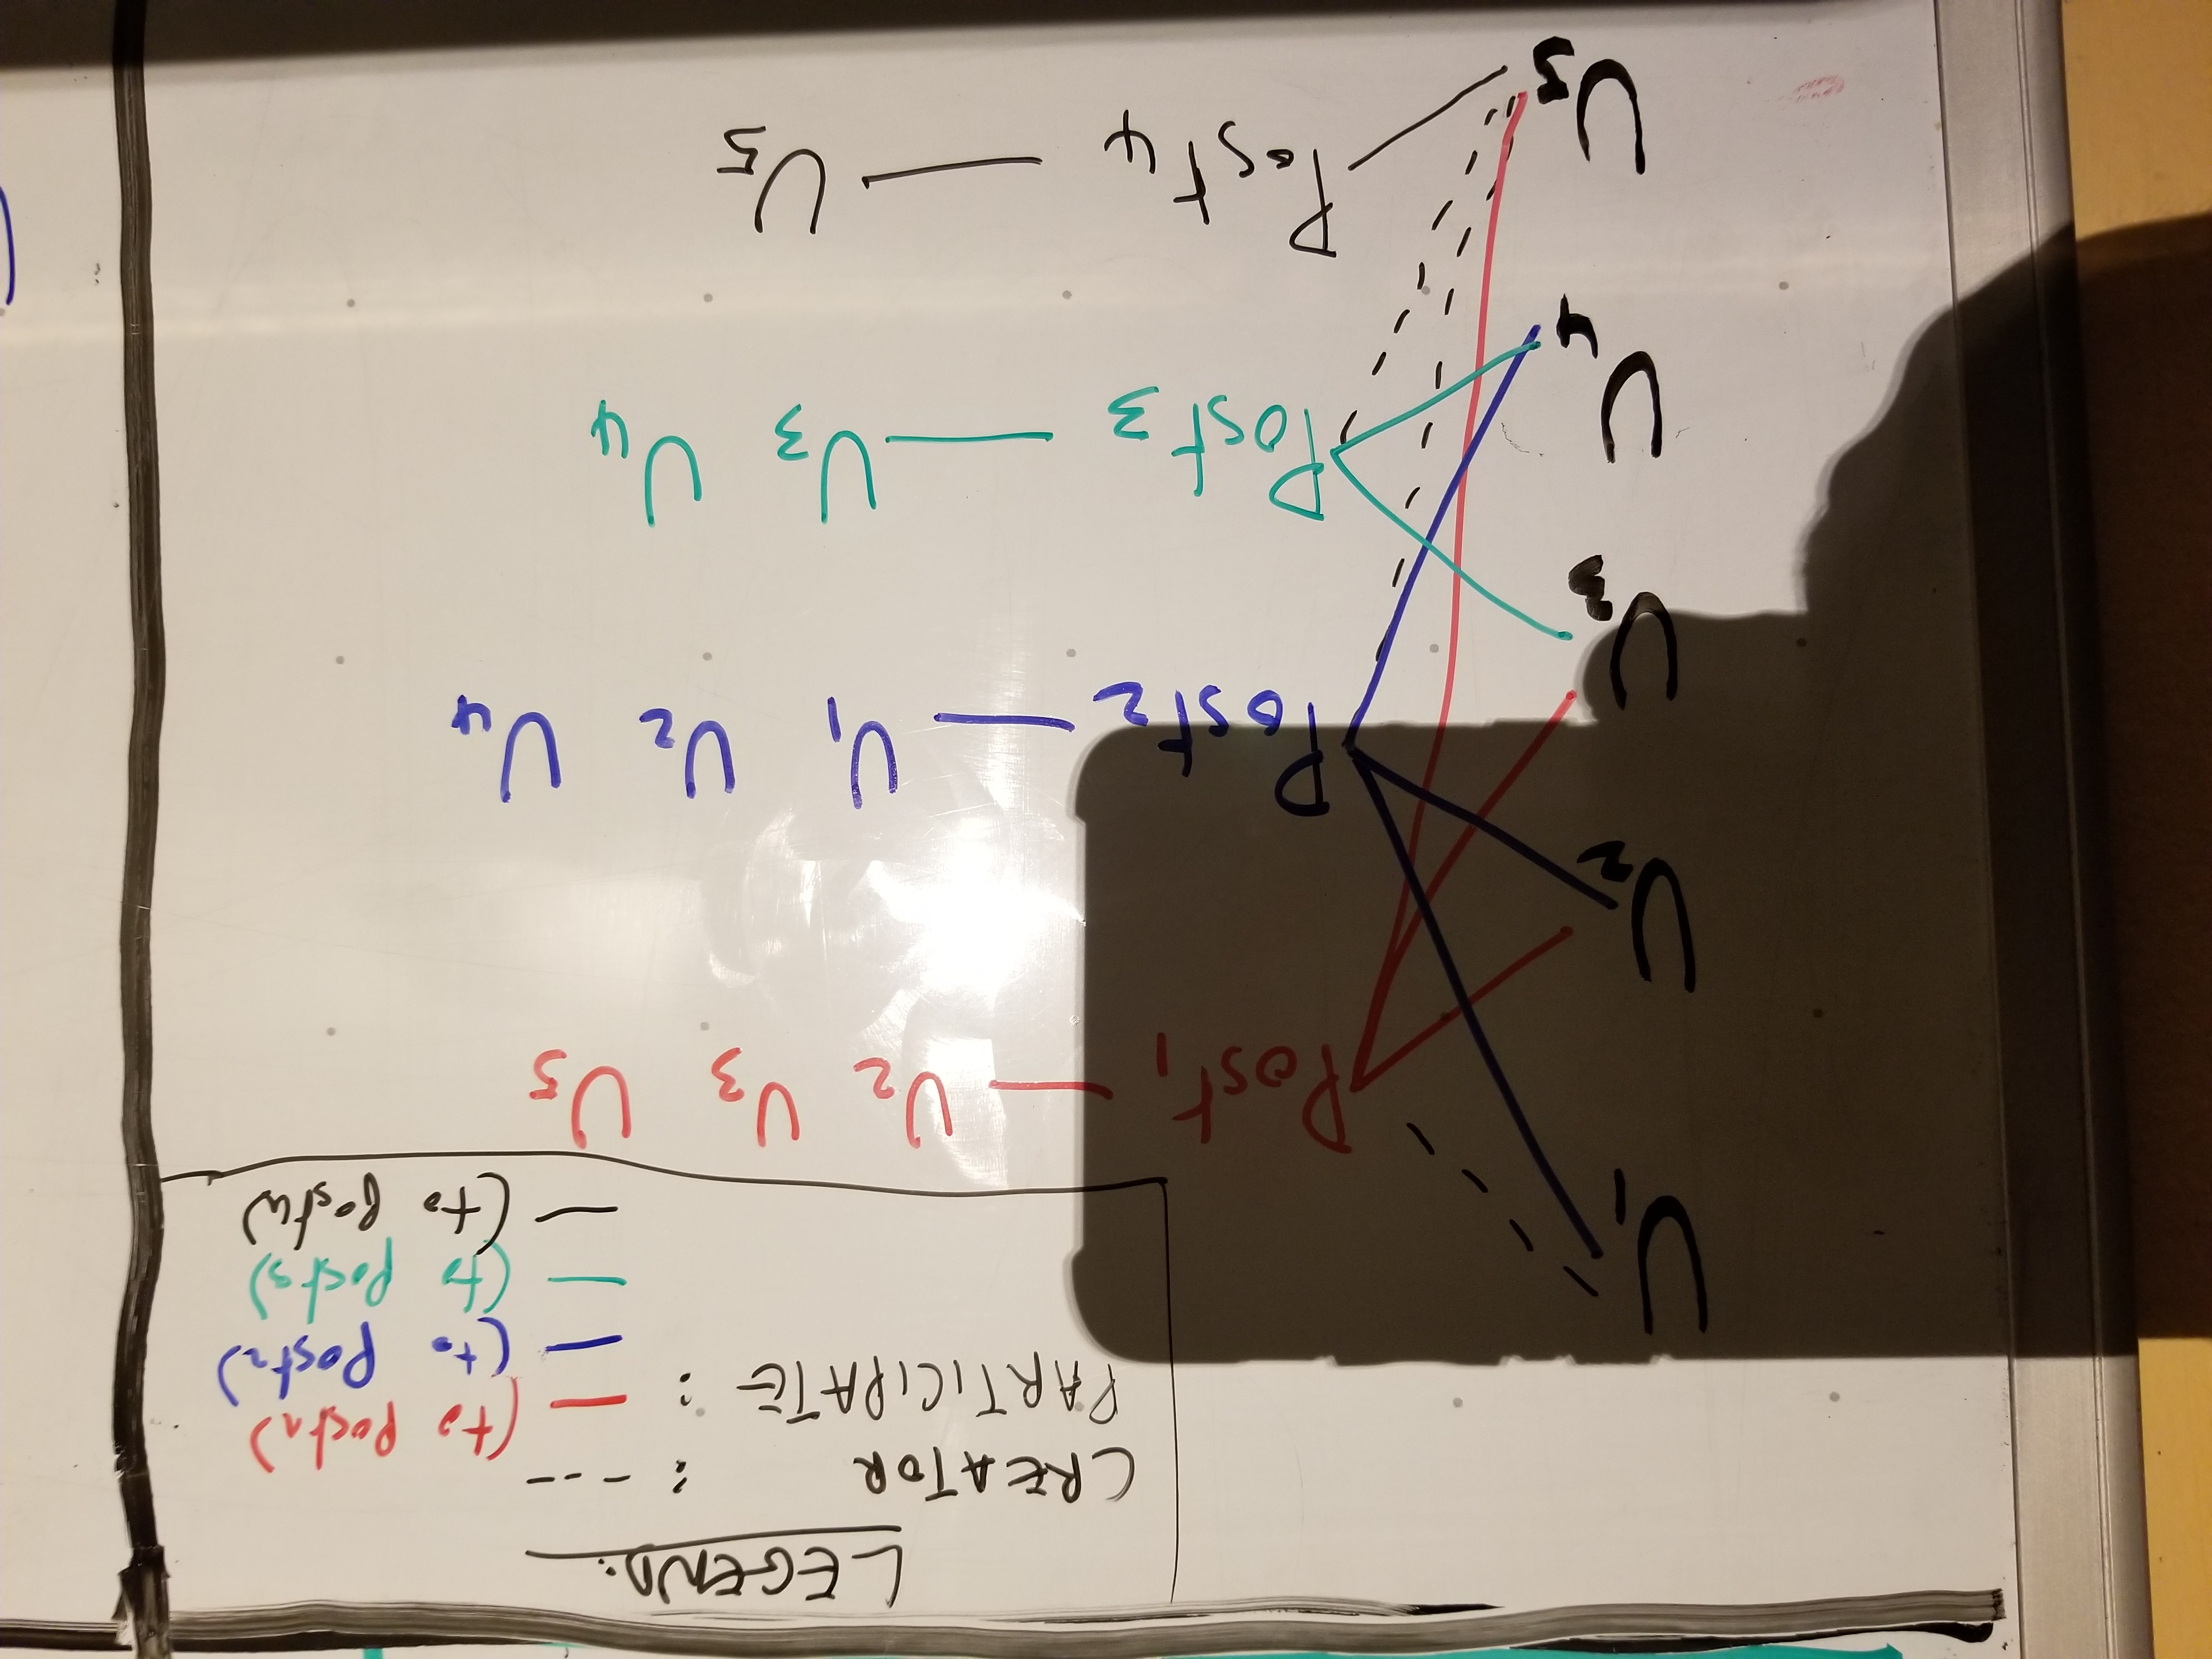 LEGEND:
CREATOR : ---
PARTICIPATE : — (to post1)
— (to post2)
— (to post3)
— (to post4)
U1
Post1 — U2 U3 U5
U2
Post2 — U1 U2 U4
U3
Post3 — U3 U4
U4
Post4 — U5
U5